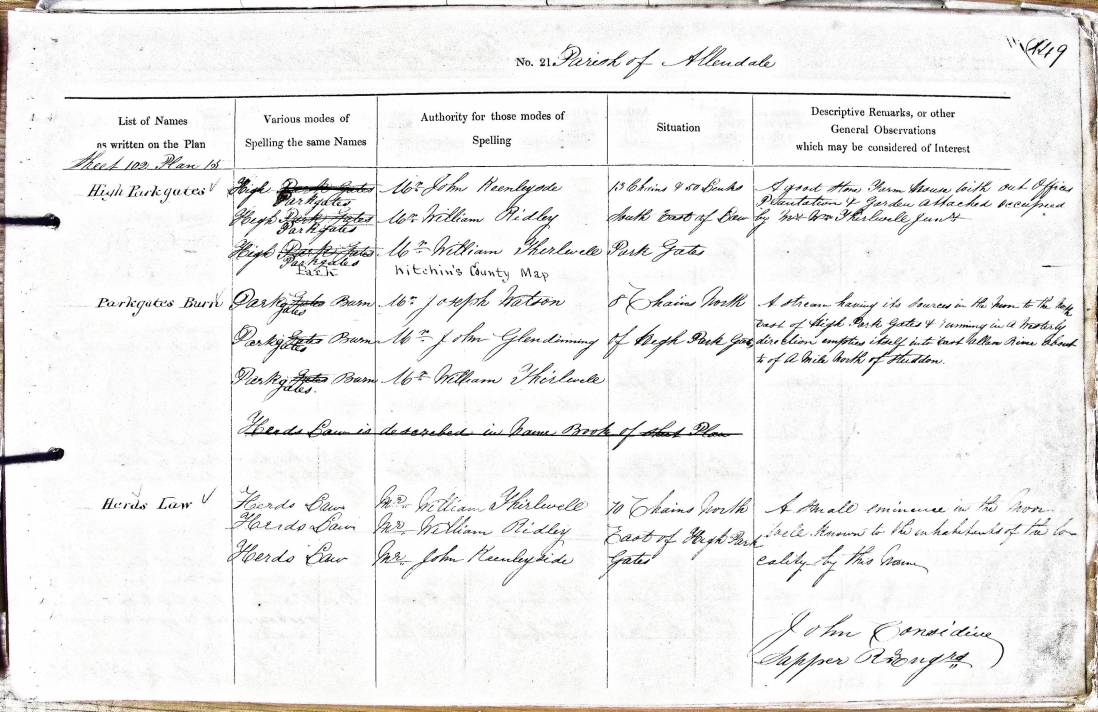 149
No. 21. Parish of Allendale
List of Names
as written on the Plan
Various modes of
Spelling the same Names
Authority for those modes of
Spelling
Situation
Descriptive Remarks, or other
General Observations
which may be considered of Interest
Sheet 102 Plan 15
High Parkgates
High Park Gates
Parkgates
Mr. John Keenlyside
13 Chains & 50 Links
A good Stone Farm house with out Offices
Plantation & Garden attached occupied
High Park Gates
Parkgates
Mr. William Ridley
South East of Low
by Mr. Wm. Thirlwell Junr.
High Park Gates
Parkgates
Mr. William Thirlwell
Park Gates
Park
Kitchin's County Map
Parkgates Burn
Park Gates Burn
gates
Mr. Joseph Watson
8 Chains North
A stream having its sources in the Moor to the North
East of High Park Gates & running in a Westerly
Park Gates Burn
gates
Mr. John Glendinning
of High Park Gates
direction empties itself into East Allen River about
¼ of a Mile North of Studdon.
Park Gates Burn
gates.
Mr. William Thirlwell
Herds Law is described in Name Book of Plan
Herds Law
Herds Law
Mr. William Thirlwell
70 Chains North
A small eminence in the Moor
Herds Law
Mr. William Ridley
East of High Park
well known to the inhabitants of the lo-
Herds Law
Mr. John Keenleyside
Gates
cality by this Name
John Considine
Sapper R. Engrs.